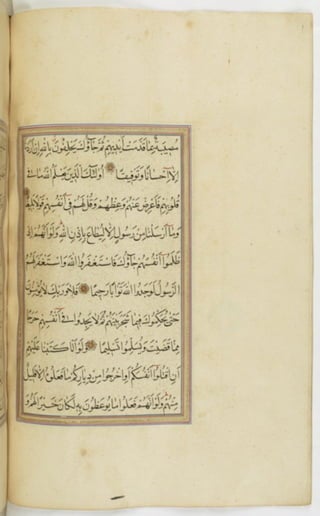 مُصِيبَةٌ بِمَا قَدَّمَتْ أَيْدِيهِمْ ثُمَّ جَاؤُكَ يَحْلِفُونَ بِاللَّهِ إِنْ أَرَدْنَا
إِلَّا إِحْسَانًا وَتَوْفِيقًا أُولَئِكَ الَّذِينَ يَعْلَمُ اللَّهُ مَا فِي
قُلُوبِهِمْ فَأَعْرِضْ عَنْهُمْ وَعِظْهُمْ وَقُلْ لَهُمْ فِي أَنْفُسِهِمْ قَوْلًا بَلِيغًا
وَمَا أَرْسَلْنَا مِنْ رَسُولٍ إِلَّا لِيُطَاعَ بِإِذْنِ اللَّهِ وَلَوْ أَنَّهُمْ إِذْ
ظَلَمُوا أَنْفُسَهُمْ جَاؤُكَ فَاسْتَغْفَرُوا اللَّهَ وَاسْتَغْفَرَ لَهُمُ
الرَّسُولُ لَوَجَدُوا اللَّهَ تَوَّابًا رَحِيمًا فَلَا وَرَبِّكَ لَا يُؤْمِنُونَ
حَتَّى يُحَكِّمُوكَ فِيمَا شَجَرَ بَيْنَهُمْ ثُمَّ لَا يَجِدُوا فِي أَنْفُسِهِمْ حَرَجًا
مِمَّا قَضَيْتَ وَيُسَلِّمُوا تَسْلِيمًا وَلَوْ أَنَّا كَتَبْنَا عَلَيْهِمْ
أَنِ اقْتُلُوا أَنْفُسَكُمْ أَوِ اخْرُجُوا مِنْ دِيَارِكُمْ مَا فَعَلُوهُ إِلَّا قَلِيلٌ
مِنْهُمْ وَلَوْ أَنَّهُمْ فَعَلُوا مَا يُوعَظُونَ بِهِ لَكَانَ خَيْرًا لَهُمْ وَ